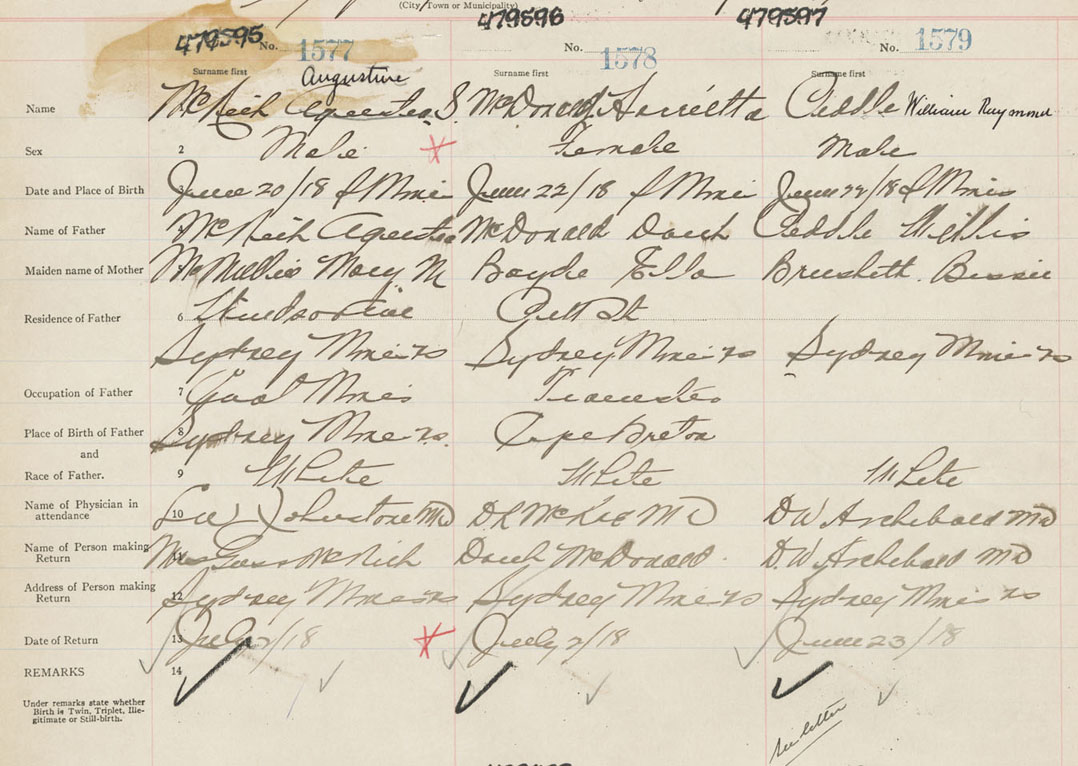 (City, Town or Municipality)
479595 479596 479597
No. 1577 No. 1578 No. 1579
Surname first Surname first Surname first
Augustine
Name McNeih S. McDonald Harrietta Ciddle William Raymond
Sex 2 Male Female Male
Date and Place of Birth 3 June 20/18 S Mines June 22/18 S Mines June 22/18 S Mines
Name of Father 4 McNeih McDonald Ciddle Willis
Maiden name of Mother 5 Mary M Boyde Ella Bessie
Residence of Father 6 Pitt St
Sydney Mines Sydney Mines Sydney Mines
Occupation of Father 7 Teamster
Place of Birth of Father 8 Sydney Mines Cape Breton
and
Race of Father. 9 White White White
Name of Physician in 10 Johnstone MD McKee MD D W Archibald MD
attendance
Name of Person making 11 Mrs McNeih McDonald D. W. Archibald MD
Return
Address of Person making 12 Sydney Mines Sydney Mines Sydney Mines
Return
Date of Return 13 July 2/18 July 2/18 June 23/18
REMARKS 14
Under remarks state whether
Birth is Twin, Triplet, Ille-
gitimate or Still-birth.
see letter